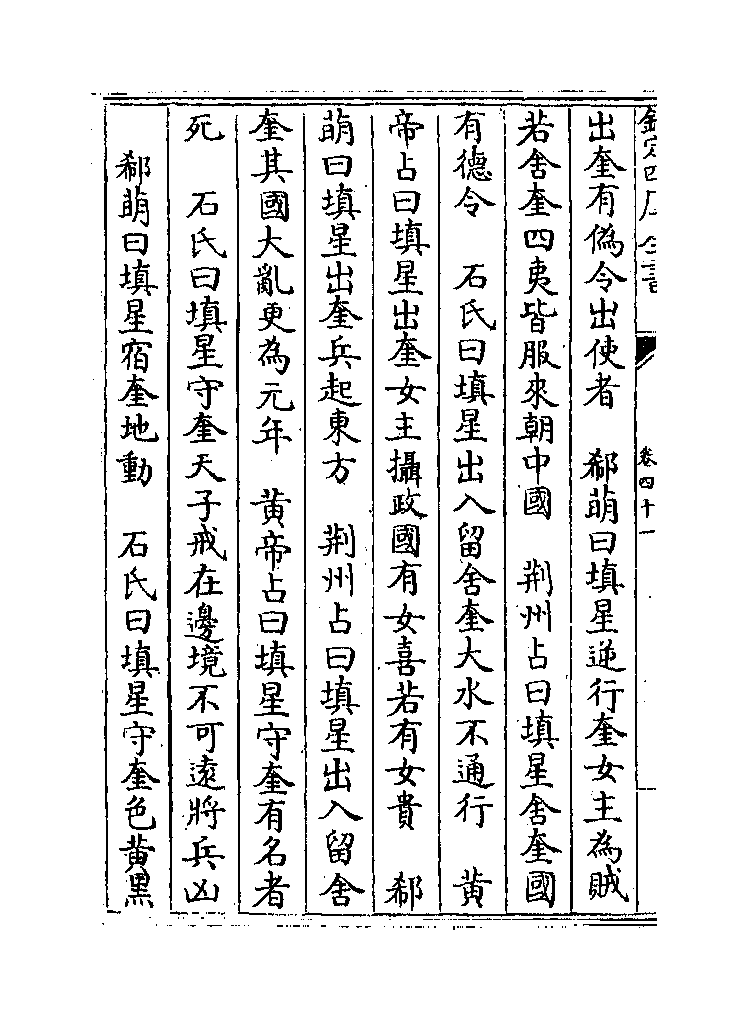 欽定四庫全書
卷四十一
出奎有偽令出使者　郗萌曰填星逆行奎女主為賊
若舍奎四夷皆服來朝中國　荆州占曰填星舍奎國
有德令　石氏曰填星出入留舍奎大水不通行　黄
帝占曰填星出奎女主攝政國有女喜若有女貴　郗
萌曰填星出奎兵起東方　荆州占曰填星出入留舍
奎其國大亂更為元年　黄帝占曰填星守奎有名者
死　石氏曰填星守奎天子戒在邊境不可遠將兵凶
郗萌曰填星宿奎地動　石氏曰填星守奎色黄黑